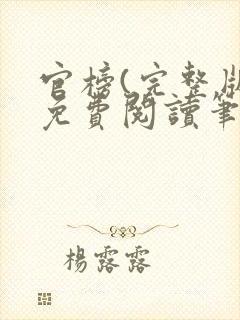 官榜(完整版
免費閱讀筆
楊露露